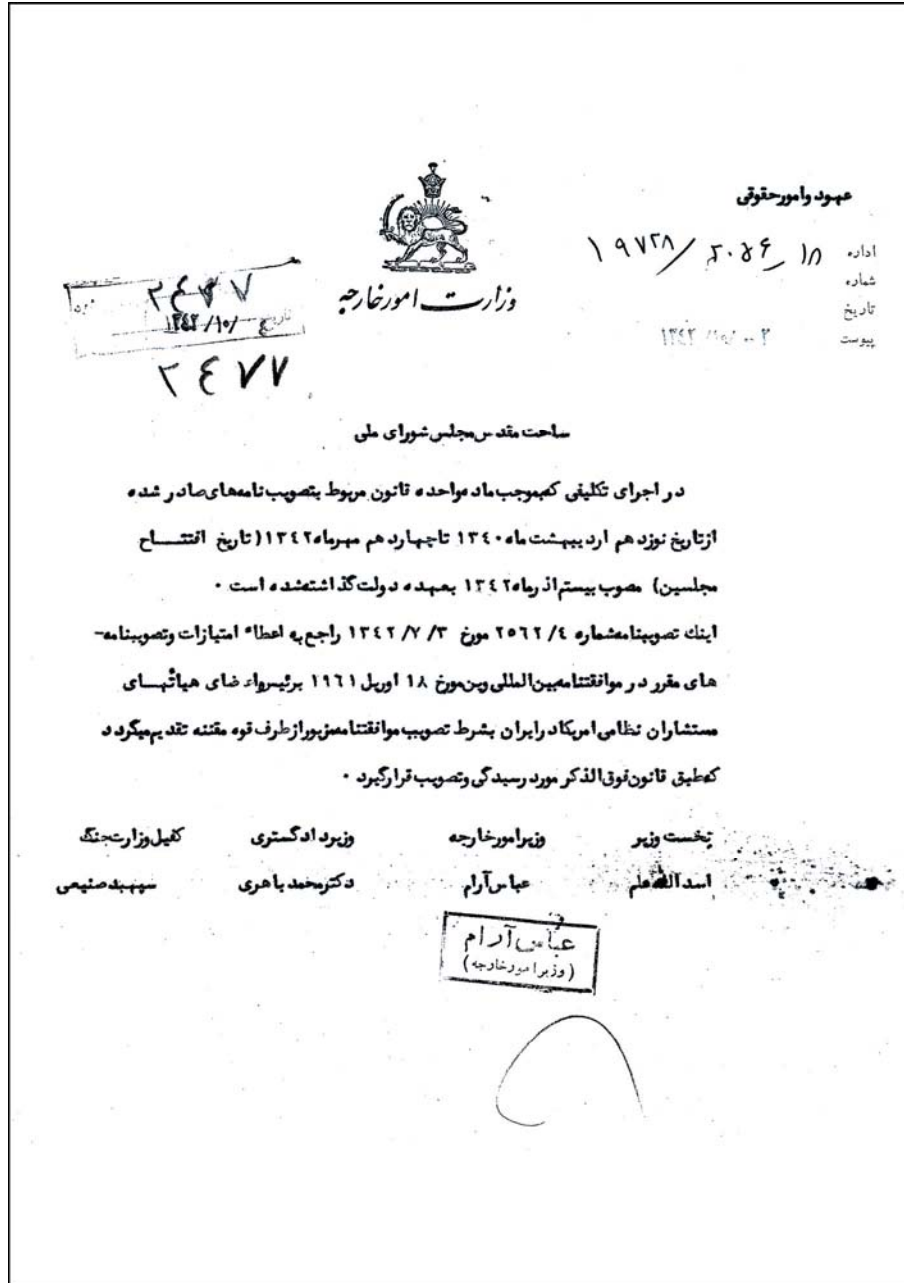 عهود وامورحقوقی
اداره ۱۸_۲۰۵۶/۱۹۷۲۸
شماره
تاریخ
پیوست ۱۳۴۲/۱۰/۰۰۲
وزارت امورخارجه
۲٤۷۷
تاریخ ۱۳٤۲/۱۰/
۲٤۷۷
ساحت مقدس مجلس شورای ملی
در اجرای تکلیفی که بموجب ماده واحده قانون مربوط بتصویب نامه های صادر شده
ازتاریخ نوزدهم اردیبهشت ماه ۱۳٤۰ تا چهاردهم مهرماه ۱۳٤۲ (تاریخ افتتـــاح
مجلسین) مصوب بیستم آذرماه ۱۳٤۲ بعهده دولت گذاشته شده است ۰
اینك تصویبنامه شماره ۲۵٦۲/٤ مورخ ۱۳٤۲/۷/۳ راجع به اعطاء امتیازات وتصویبنامه-
های مقرر در موافقتنامه بین المللی وین مورخ ۱۸ اوریل ۱۹٦۱ برئیس واعضای هیأتهـــای
مستشاران نظامی امریکا در ایران بشرط تصویب موافقتنامه مزبور از طرف قوه مقننه تقدیم میگردد
که طبق قانون فوق الذکر مورد رسیدگی وتصویب قرارگیرد ۰
نخست وزیر وزیرامورخارجه وزیردادگستری کفیل وزارت جنگ
اسدالله علم عباس آرام دکترمحمد باهری سپهبد صنیعی
عباس آرام
(وزیر امورخارجه)